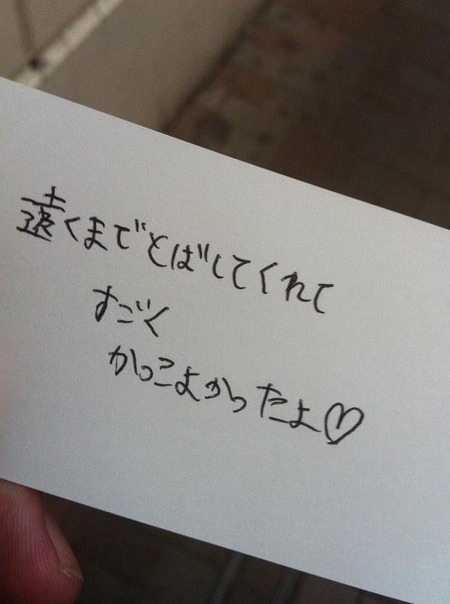 遠くまでとばしてくれて
すごく
かっこよかったよ♡